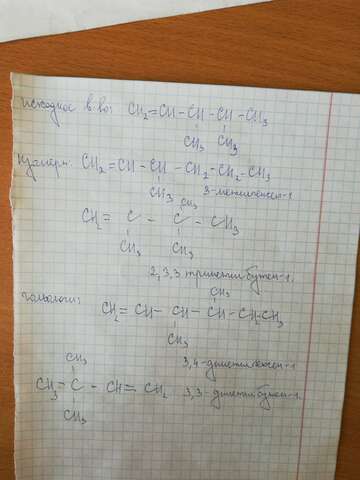 исходное в-во: CH₂=CH-CH-CH-CH₃
CH₃ CH₃
изомеры: CH₂=CH-CH-CH₂-CH₂-CH₃
CH₃ 3-метилгексен-1
CH₃
CH₂= C - C - CH₃
CH₃ CH₃
2,3,3 триметилбутен-1.
гомологи: CH₃
CH₂=CH-CH-CH-CH₂-CH₃
CH₃
3,4-диметилгексен-1
CH₃
CH₃=C-CH=CH₂ 3,3-диметилбутен-1.
CH₃